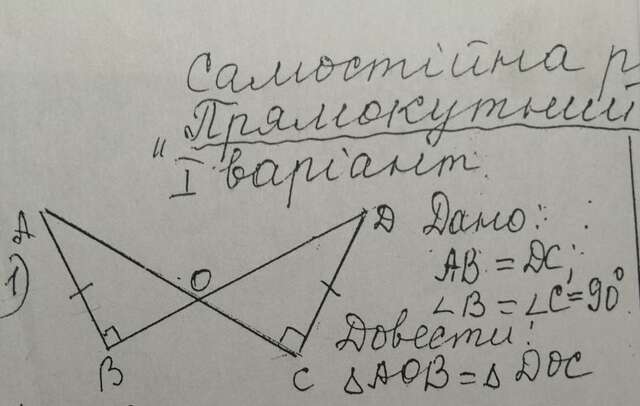 Самостійна р
"Прямокутний
I варіант.
A
D
Дано:
1)
O
AB = DC;
∠B = ∠C = 90°
B
C
Довести:
△AOB = △DOC